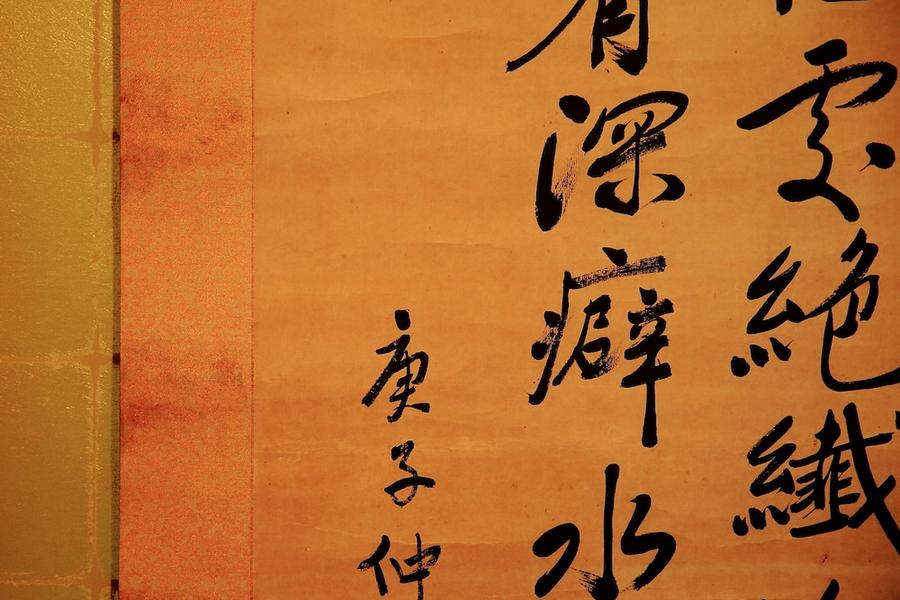 處絕纖
有深癖水
庚子仲